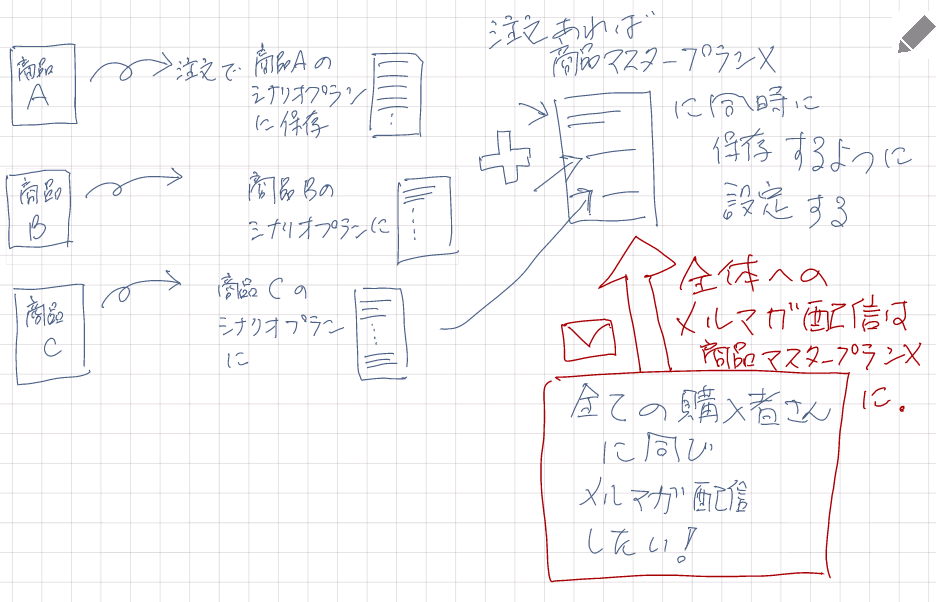 商品
A
注文で
商品Aの
シナリオプラン
に保存
商品
B
商品Bの
シナリオプランに
商品
C
商品Cの
シナリオプラン
に
注文あれば
商品マスタープランX
に同時に
保存するように
設定する
全体への
メルマガ配信は
商品マスタープランX
に.
全ての購入者さん
に同じ
メルマガ配信
したい!